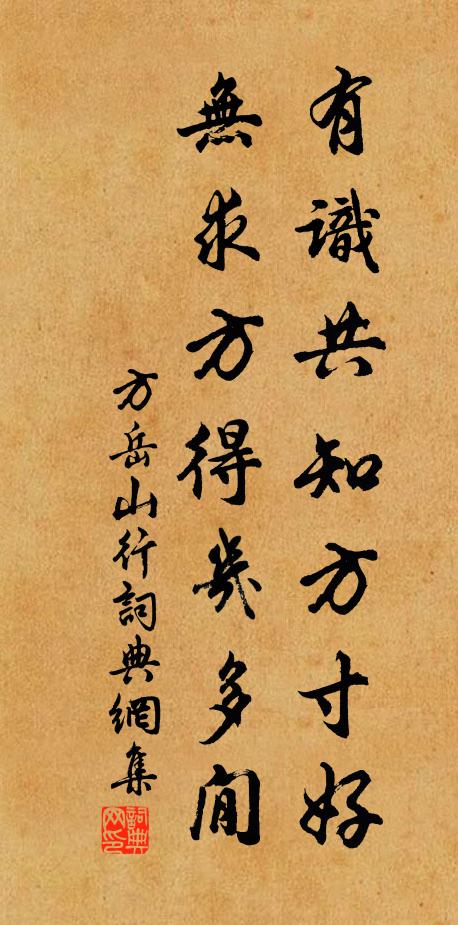 有識共知方寸好
無求方得幾多閒
方岳山行詞典網集
詞典網印